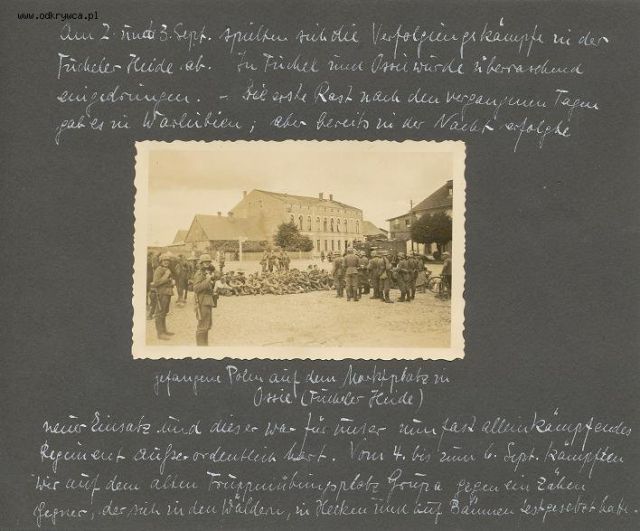 www.odkrywca.pl
Am 2. und 3. Sept. spielten sich die Verfolgungskämpfe in der
Tucheler Heide ab. In Tuchel und Ossie wurde überraschend
eingedrungen. – Die erste Rast nach den vergangenen Tagen
gab es in Warlubien; aber bereits in der Nacht erfolgte
gefangene Polen auf dem Marktplatz in
Ossie (Tucheler Heide)
neuer Einsatz und dieser war für unser nun fast alleinkämpfendes
Regiment außerordentlich hart. Vom 4. bis zum 6. Sept. kämpften
wir auf dem alten Truppenübungsplatz Grupa gegen ein zähen
Gegner, der sich in den Wäldern, in Hecken und auf Bäumen festgesetzt hatte.